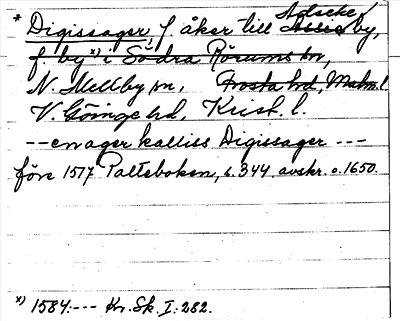 * Digissager, f. åker till Adseke by,
f by x) i Södra Rörums sn,
N. Mellby sn, Frosta hd, Malm. l.
V. Göinge hd, Krist. l.
--en ager kalliss Digissager ---
före 1517 Palteboken, s. 344. avskr. o. 1650.
x) 1584:--- Kr. Sk. I: 282.